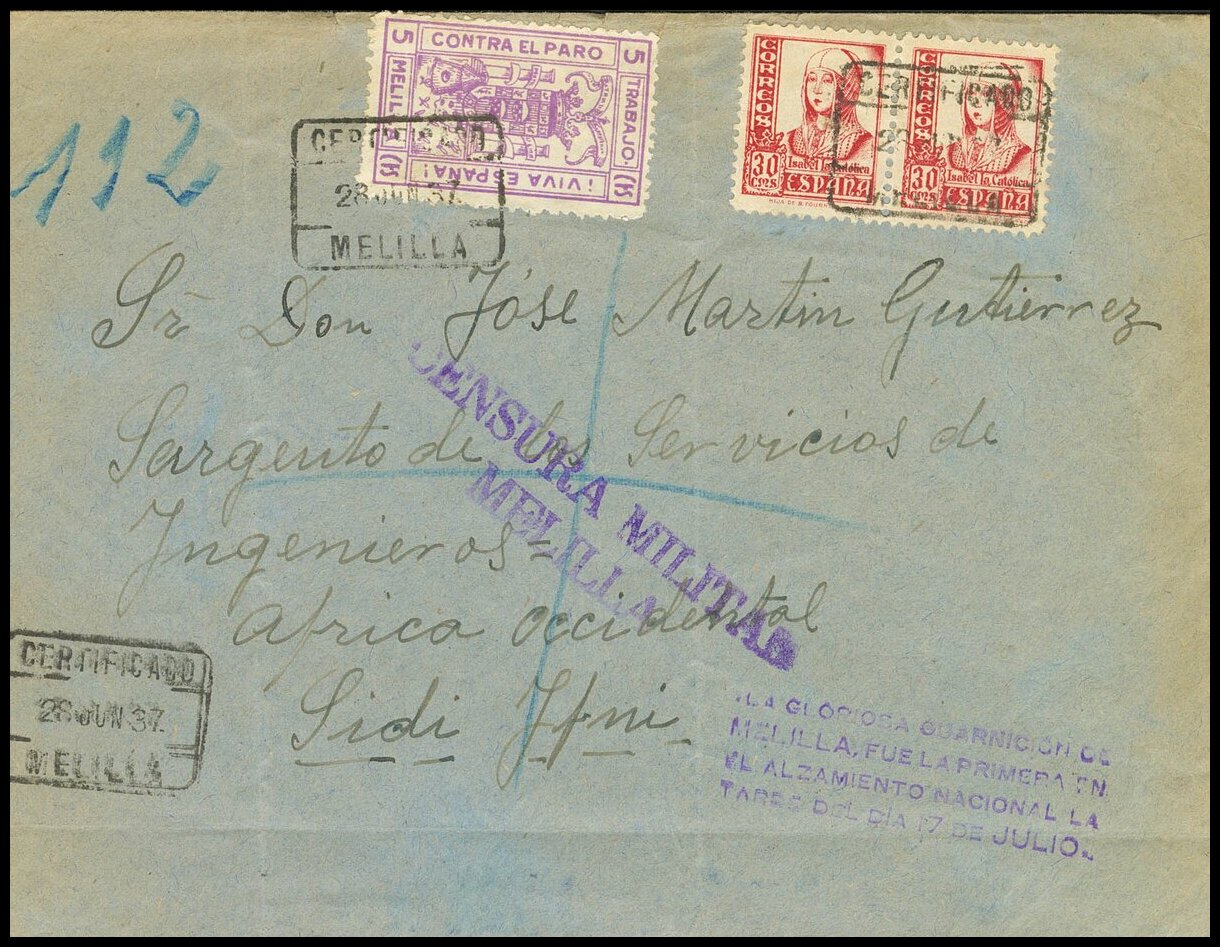 112
5 CONTRA EL PARO 5
TRABAJO.
¡VIVA ESPAÑA!
CORREOS
30 CTMS
Isabel la Católica
ESPAÑA
CORREOS
30 CTMS
Isabel la Católica
ESPAÑA
CERTIFICADO
28 JUN 37.
MELILLA
CERTIFICADO
Sr Don José Martin Gutierrez
Sargento de los Servicios de
Ingenieros-
Africa occidental
Sidi Ifni
CENSURA MILITAR
MELILLA
CERTIFICADO
28 JUN 37.
MELILLA
LA GLORIOSA GUARNICIÓN DE
MELILLA, FUE LA PRIMERA EN
EL ALZAMIENTO NACIONAL LA
TARDE DEL DÍA 17 DE JULIO.